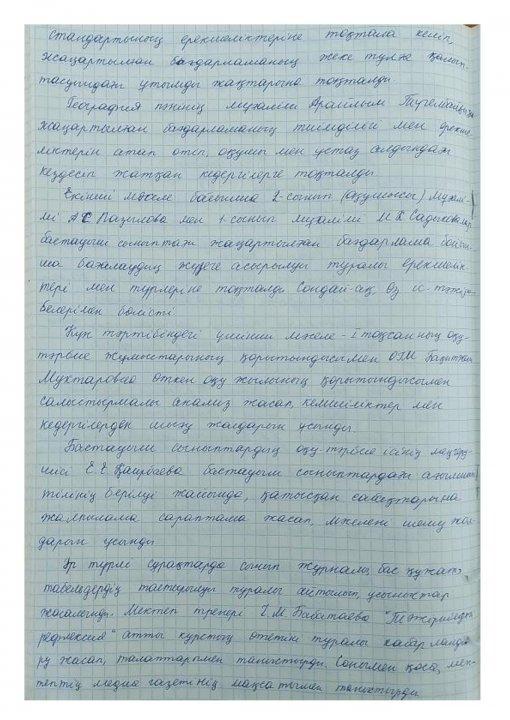 стандартының ерекшеліктеріне тоқтала келіп,
жаңартылған бағдарламаның жеке тұлға қалып-
тасуындағы ұтымды жақтарына тоқталды.
География пәнінің мұғалімі Арайлым
жаңартылған бағдарламаның тиімділігі мен ерекше-
ліктерін атап өтіп, оқушы мен ұстаз алдындағы
кездесіп жатқан кедергілерге тоқталды.
Екінші мәселе бойынша 2-сынып (оқушысы) мұғалі-
мі А.С Пазылова мен 1-сынып мұғалімі М.К Садыкова
бастауыш сыныптағы жаңартылған бағдарлама бойын-
ша бағалаудың жүзеге асырылуы туралы ерекшелік-
тері мен түрлеріне тоқталды Сондай-ақ, өз іс-тәжіри-
белерімен бөлісті.
Күн тәртібіндегі үшінші мәселе - I тоқсанның оқу-
тәрбие жұмыстарының қорытындысымен ОІМ
Мухтаровна өткен оқу жылының қорытындысымен
салыстырмалы анализ жасап, кемшіліктер мен
кедергілерден шығу жолдарын ұсынды.
Бастауыш сыныптардың оқу-тәрбие ісінің меңгеру-
шісі Е.Е Қаирбаева бастауыш сыныптардағы ағылшын
тілінің берілуі жайында, қатысқан сабақтарына
жалпылама сараптама жасап, мәселені шешу жол-
дарын ұсынды
Әр түрлі сұрақтарда сынып журналы, бас құжат,
табельдердің толтырылуы туралы айтылып, ұсыныстар
жасалынды. Мектеп тренері Г.М Бабатаева "Тәжірибедегі
рефлексия" атты курстың өтетіні туралы хабарланды-
ру жасап, талаптарымен таныстырды. Сонымен қоса, мек-
тептің медиа газетінің мақсатымен таныстырды.